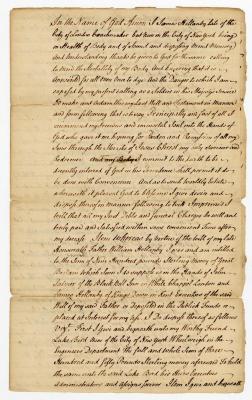 In the Name of God Amen I James Hollamby late of the
City of London Coachmaker but now in the City of New York being
in Health of Body and of Sound and disposing Mind Memory
and Understanding thanks be given to God for the same calling
to mind the Mortality of my Body And knowing that it is
appointed for all men Once to dye And the Danger to which I am
exposed by my present calling as a Soldier in his Majestys Service
Do make and ordain this my last Will and Testament in Manner
and form following that is to say Principally and first of all I
recommend my Soul and immortal Soul into the Hands of
God who gave it me hoping for Pardon and Remission of all my
Sins through the Merits of Jesus Christ my only Saviour and
Redeemer And my Body I commit to the Earth to be
decently interred if God in his Providence shall permit it to
be done with Convenience And as to such worldly Estate
wherewith it pleased God to bless me I give devise and
dispose thereof in Manner following to wit Imprimis I
will that all my Just Debts and funeral Charges be well and
truly paid and Satisfied within some convenient time after
my decease Item Whereas by virtue of the last will of my late
Honoured Father William Hollamby I was and am entitled
to the Sum of Nine Hundred pounds Sterling Money of Great
Britain which Sum I so suppose in the Hands of John
of the Black Bull Inn in White Chappel London and
Henry Hollamby of Kings Down in Kent Executors of the said
Will of my said Father or together in the Publick Funds or
placed at Interest for my use I do dispose thereof as follows
Viz. First I give and bequeath unto my Worthy Friend
Luke Bird Now of the City of New York Wheelwright in the
Engineers Department the full and whole Sum of three
Hundred and Fifty Pounds Sterling money aforesaid To hold
the same unto the said Luke Bird his Heirs Executors
administrators and Assigns forever Item I give and bequeath